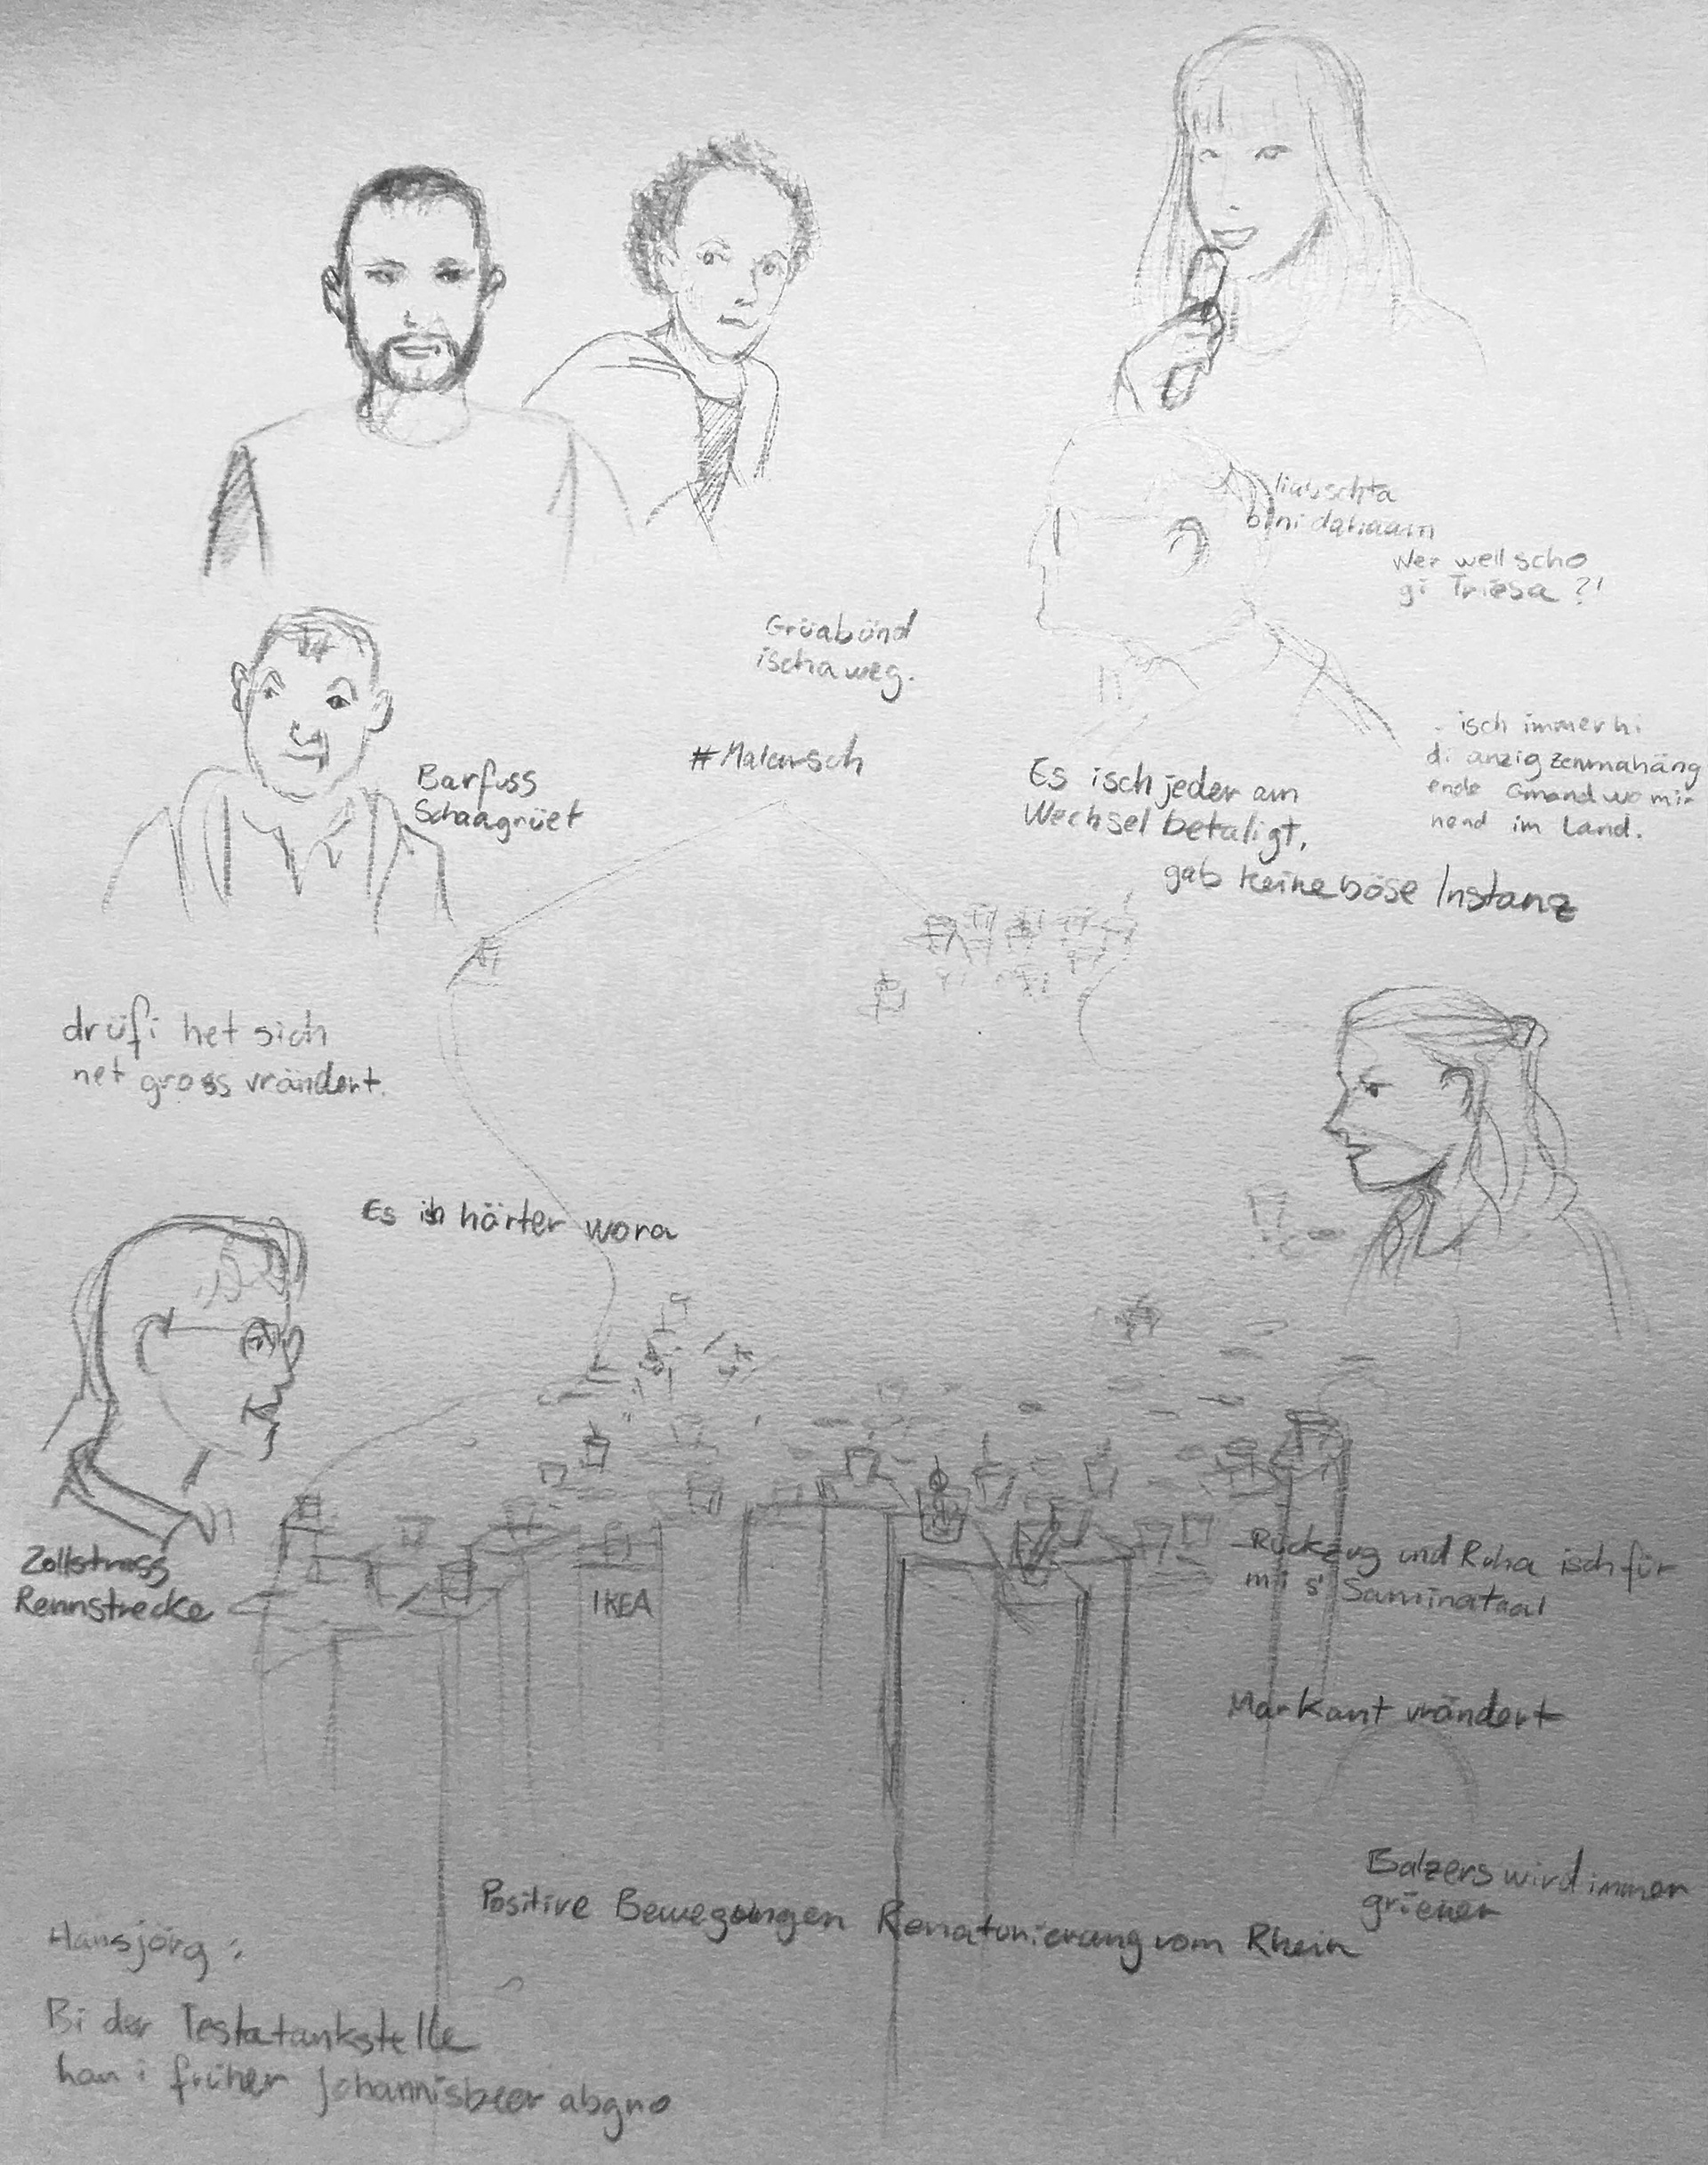 liabschta
bi ni dahaam
Wer well scho
gi Triesa ?!
Grüabönd
ischa weg.
isch immerhi
di anzig zemmahäng
ende Gmand wo mir
hend im Land.
#Malensch
Barfuss
Schaagrüet
Es isch jeder am
Wechsel betaligt,
gab keine böse Instanz
drüfi het sich
net gross vrändert.
Es isch härter wora
Zollstrass
Rennstrecke
IKEA
Rückzug und Ruha isch für
mi s' Saminataal
Markant vrändert
Balzers wird immer
griener
Positive Bewegungen Renaturierung vom Rhein
Hansjörg:
Bi der Testatankstelle
han i früher Johannisbeer abgno